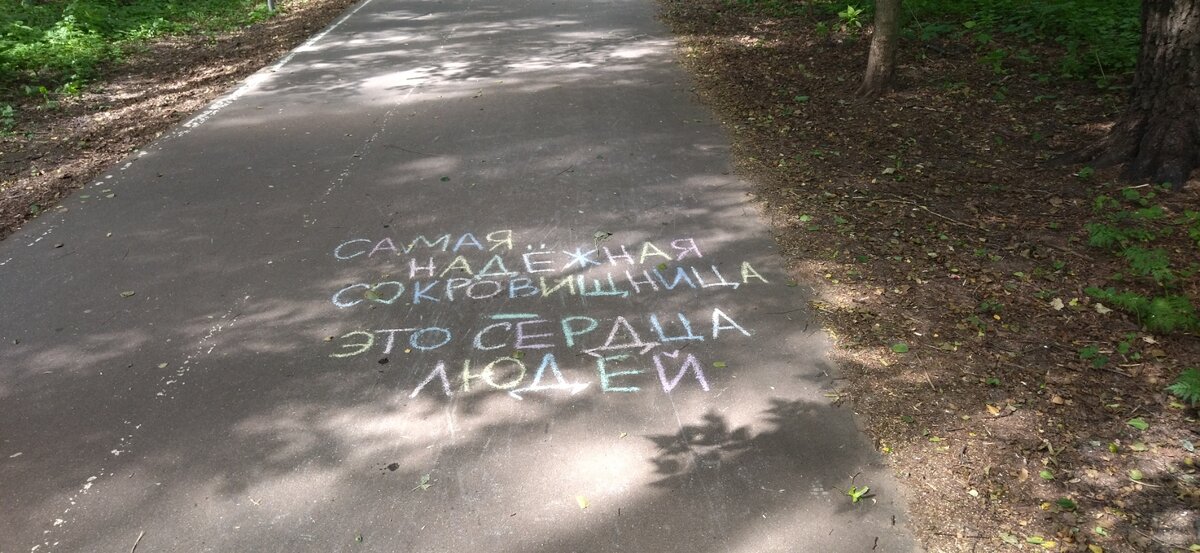 САМАЯ
НАДЁЖНАЯ
СОКРОВИЩНИЦА
—
ЭТО СЕРДЦА
ЛЮДЕЙ